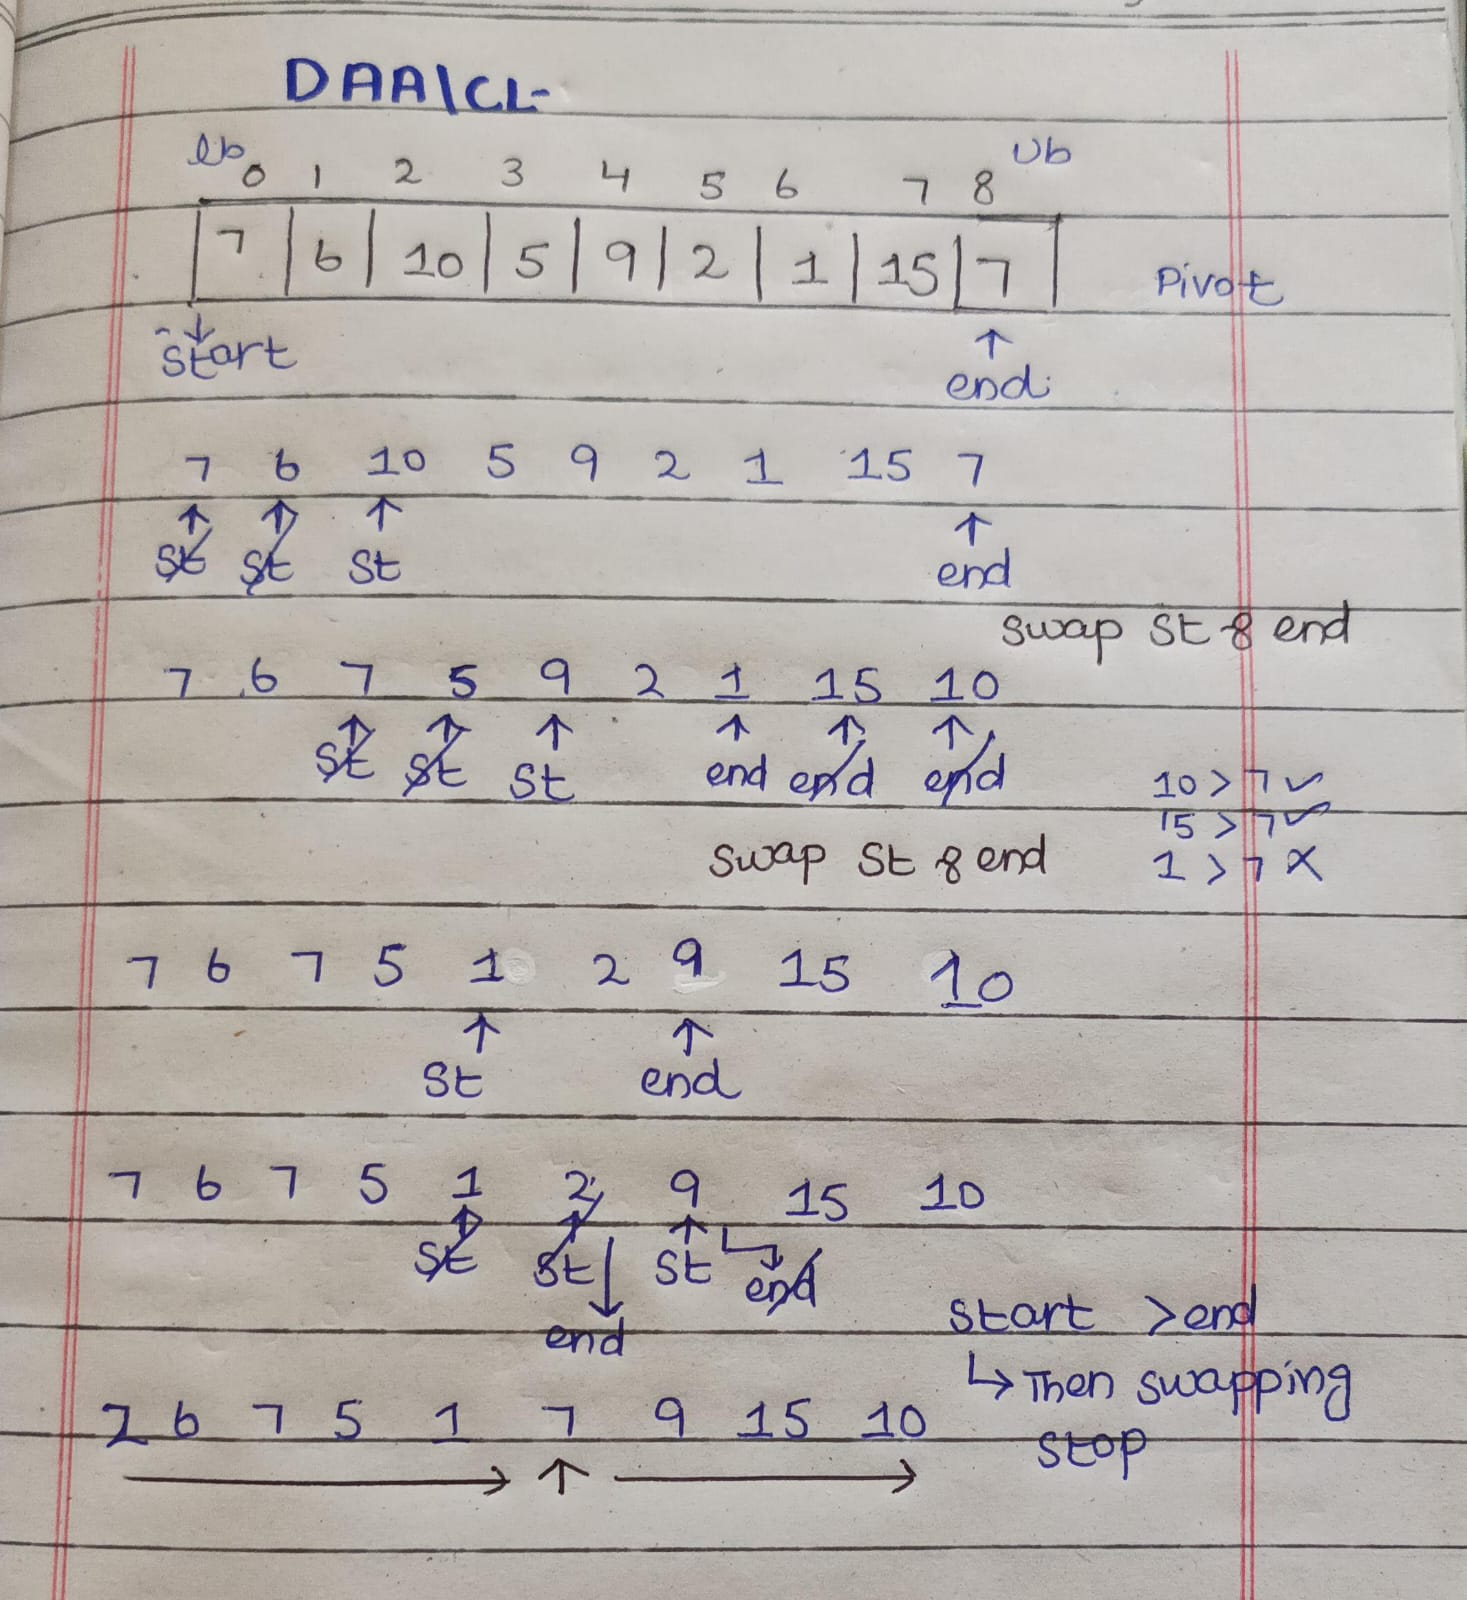 DAA\CL-
lb 0 1 2 3 4 5 6 7 8 Ub
7 6 10 5 9 2 1 15 7 Pivot
start end
7 6 10 5 9 2 1 15 7
↑ ↑ ↑ ↑
st st st end
swap st & end
7 6 7 5 9 2 1 15 10
↑ ↑ ↑ ↑ ↑ ↑
st st st end end end 10 > 7 ✓
15 > 7 ✓
swap st & end 1 > 7 ✗
7 6 7 5 1 2 9 15 10
↑ ↑
st end
7 6 7 5 1 2 9 15 10
↑ ↑ ↑
st st st end
start > end
end
↳ Then swapping
2 6 7 5 1 7 9 15 10
stop
→ ↑ →